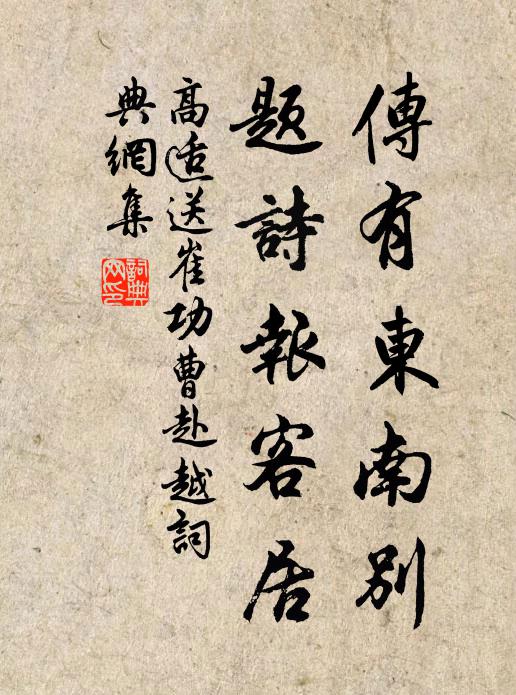 傳有東南別
題詩報客居
高适送崔功曹赴越詞
典網集
詞典网印